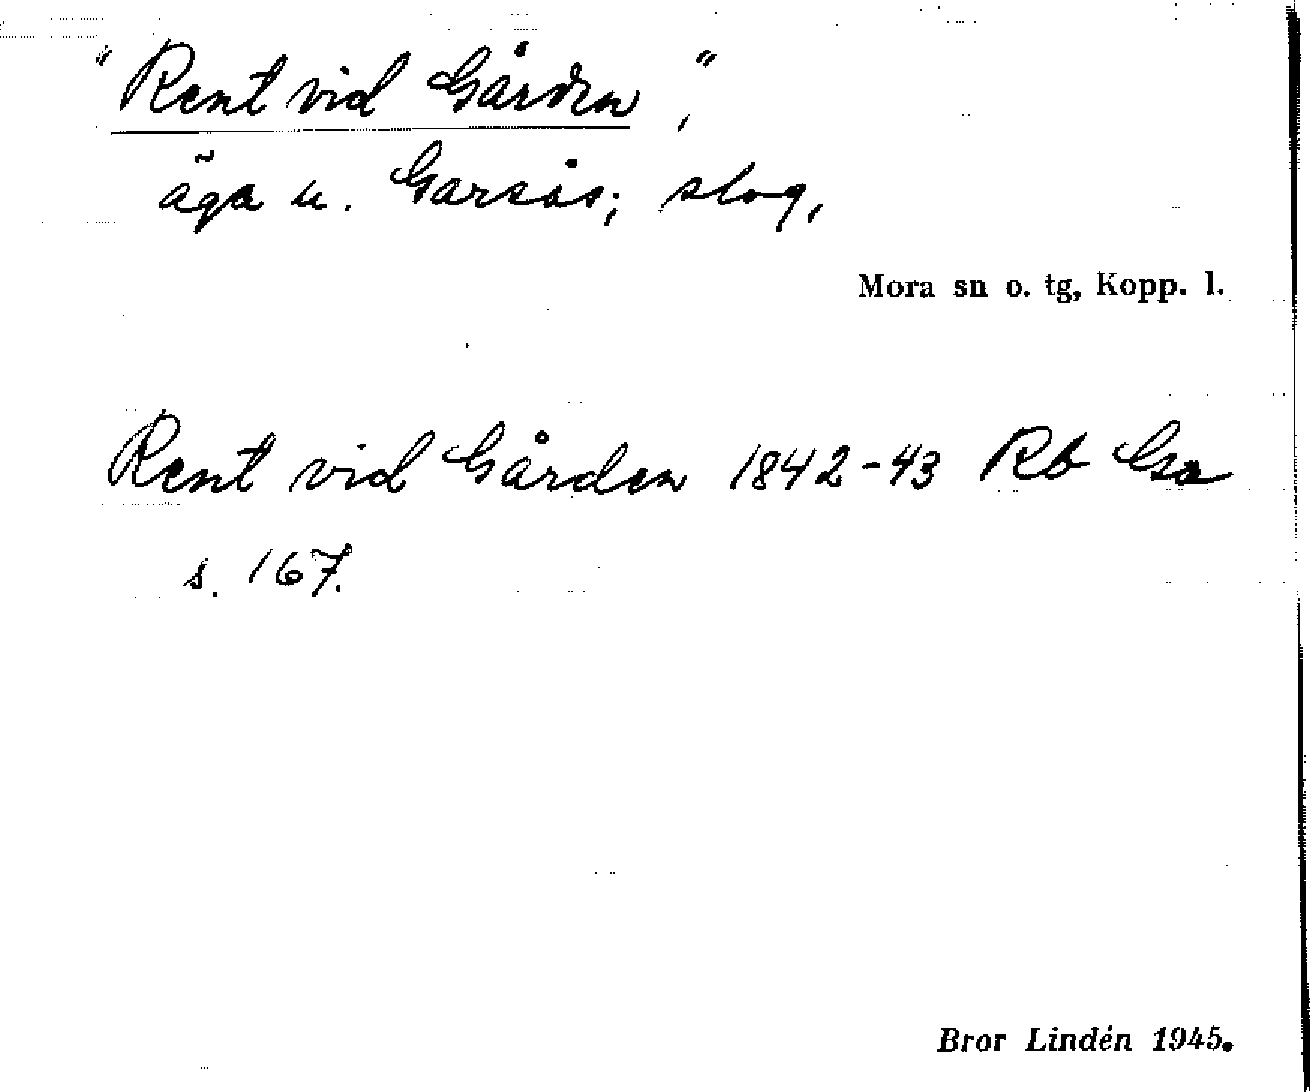 "Rent vid Gården",
äga u. Garsås; slog,
Mora sn o. tg, Kopp. l.
Rent vid Gården 1842-43 Rb Gsa
s. 167.
Bror Lindén 1945.